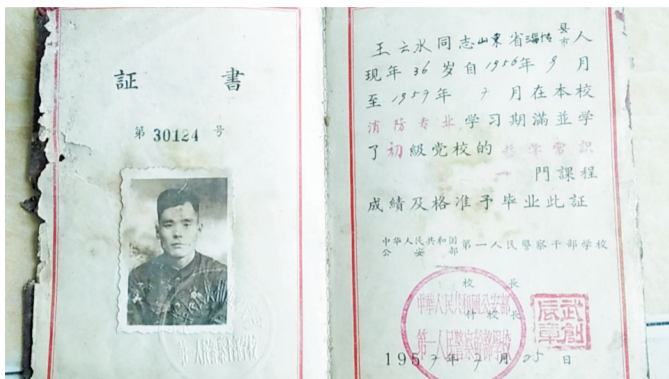 証 書
第 30124 号
王云水同志山東省海阳县市人
現年36岁自1956年9月
至1957年7月在本校
消防专业学习期滿並学
了初級党校的哲学常识
一門課程
成績及格准予毕业此証
中华人民共和国公安部第一人民警察干部学校
校 長
武創辰章
1957年7月25日